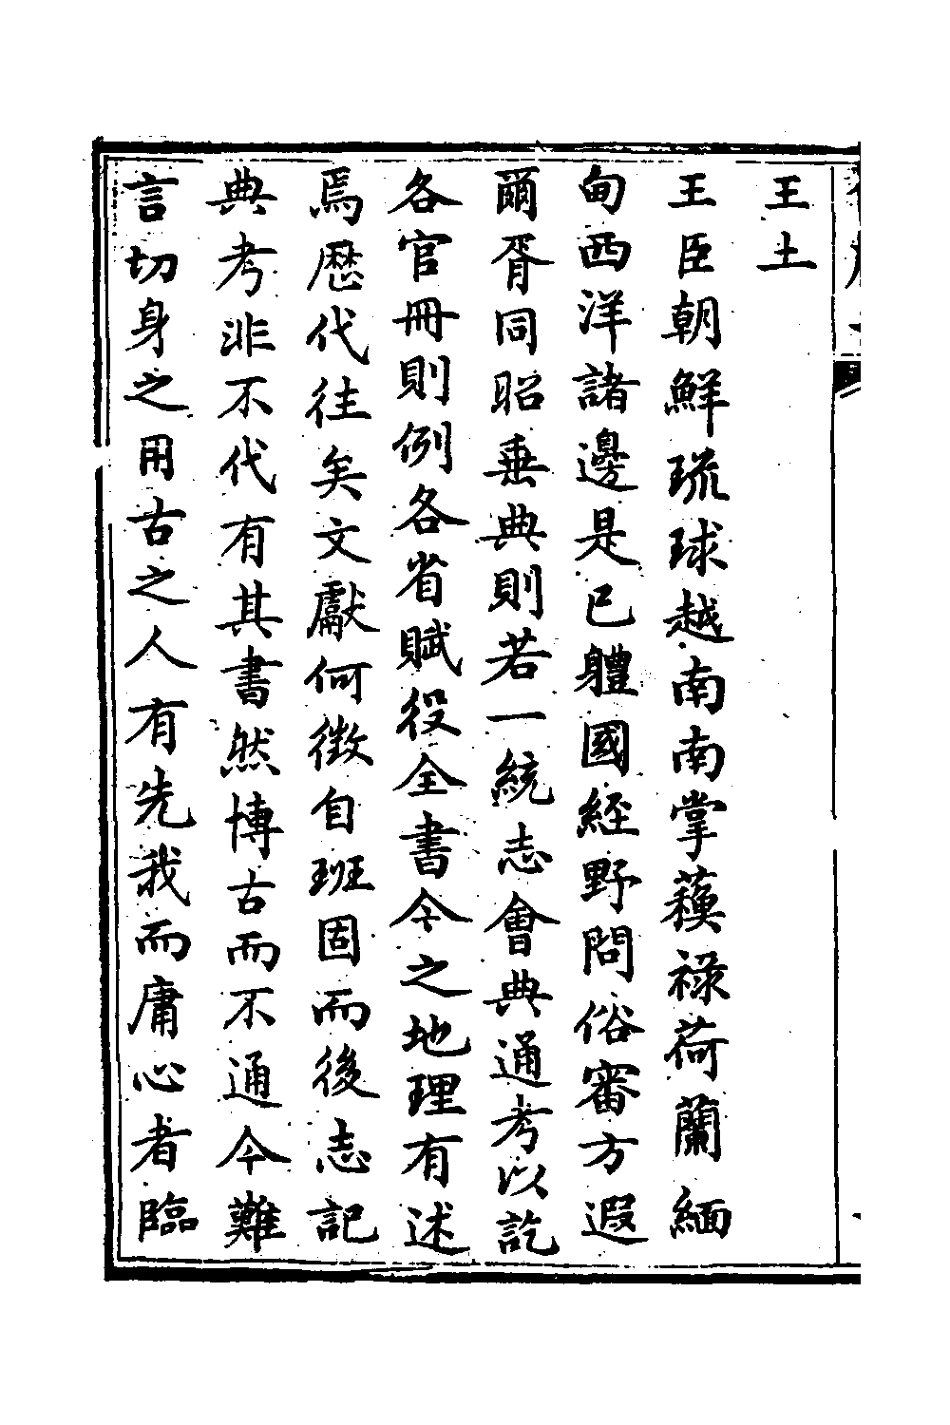 王土
王臣朝鮮琉球越南南掌蘓祿荷蘭緬
甸西洋諸邊是已體國經野問俗審方遐
爾胥同昭垂典則若一統志會典通考以訖
各官冊則例各省賦役全書今之地理有述
焉歴代徃矣文獻何徴自班固而後志記
典考非不代有其書然博古而不通今難
言切身之用古之人有先我而庸心者臨